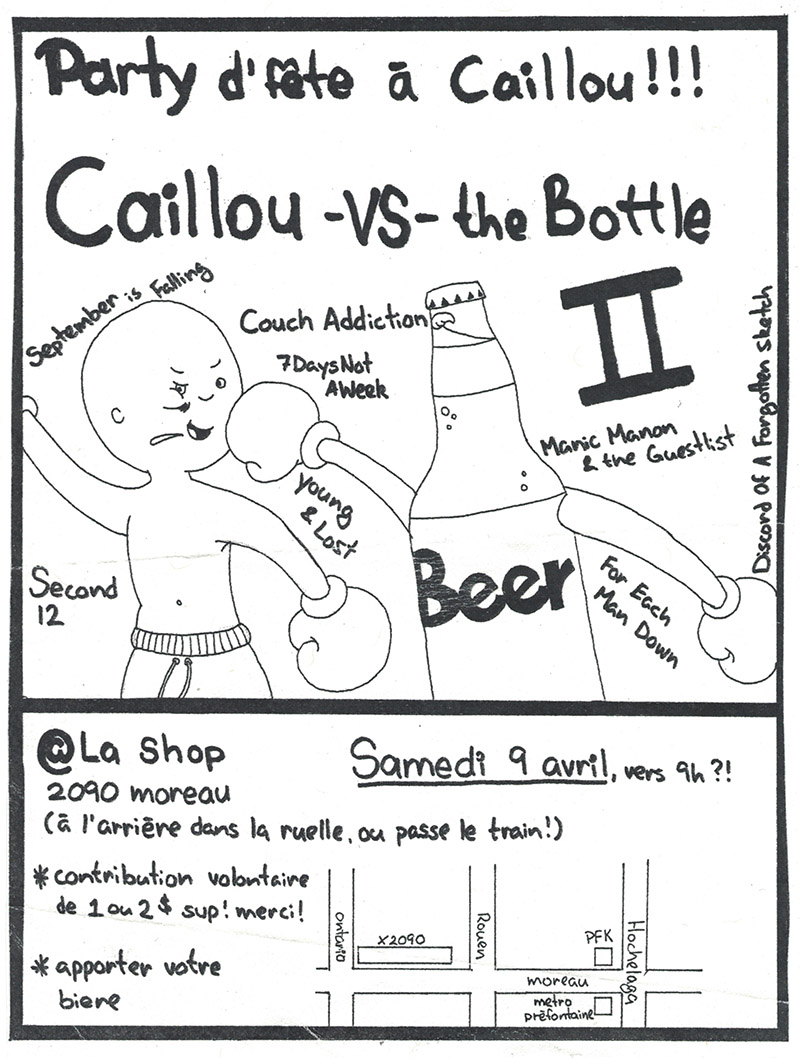 Party d'fête à Caillou!!!
Caillou -VS- the Bottle
II
September is Falling
Couch Addiction
7 Days Not
A Week
Manic Manon
& the Guestlist
Discord Of A Forgotten sketch
Young
& Lost
Second
12
Beer
For Each
Man Down
@La Shop
2090 moreau
(à l'arrière dans la ruelle, ou passe le train!)
Samedi 9 avril, vers 9h?!
* contribution volontaire
de 1 ou 2$ sup! merci!
* apporter votre
biere
ontario
X2090
Rouen
PFK
Hochelaga
moreau
metro
préfontaine